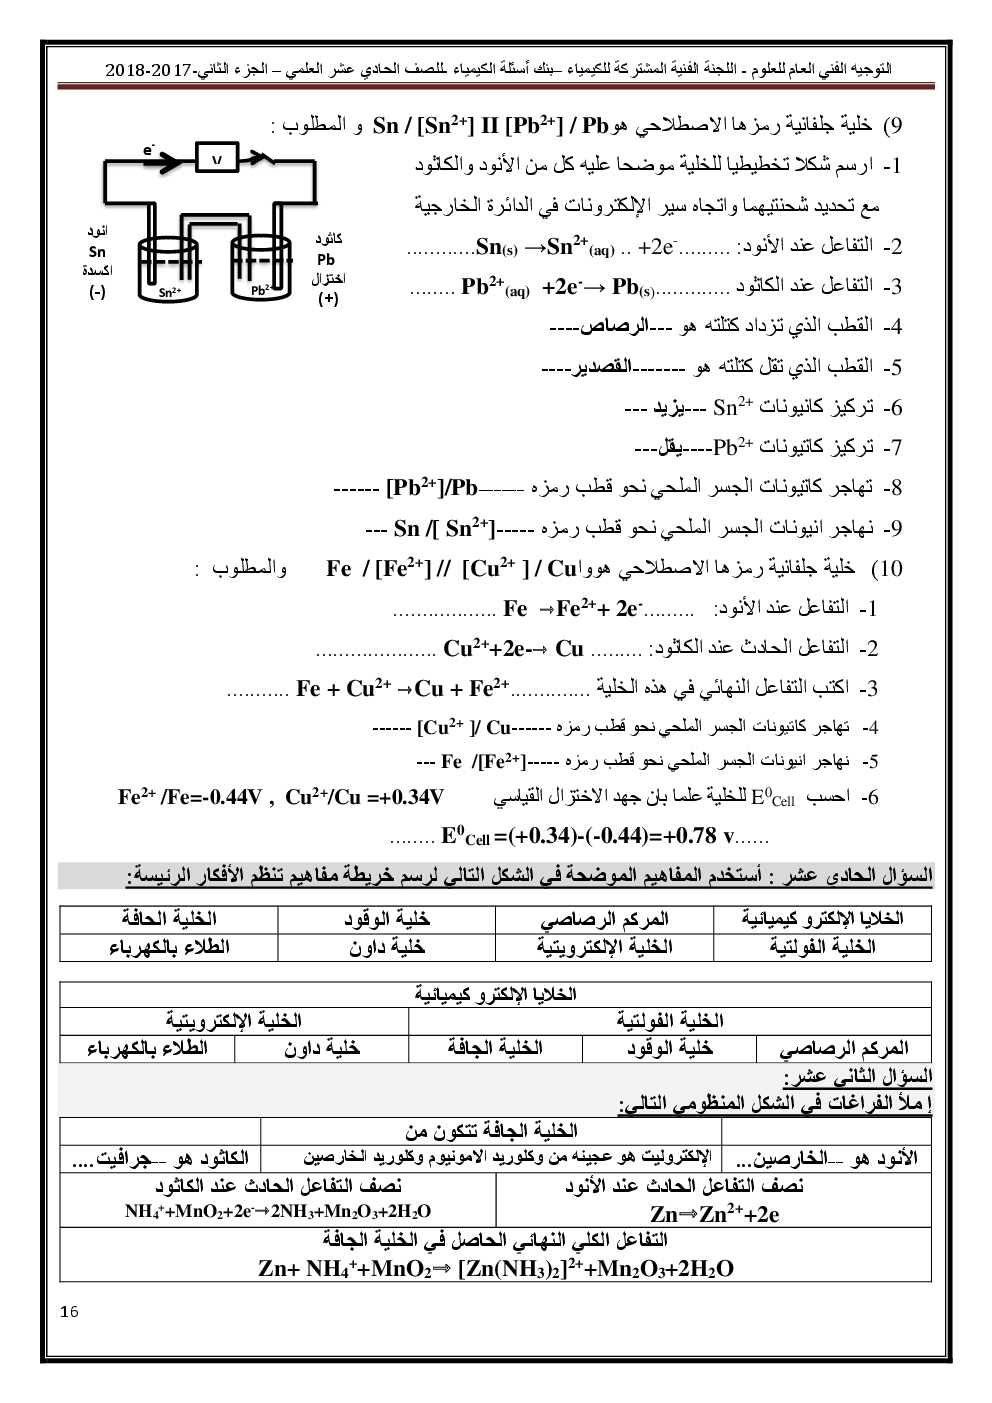 التوجيه الفني العام للعلوم - اللجنة الفنية المشتركة للكيمياء –بنك أسئلة الكيمياء -للصف الحادي عشر العلمي – الجزء الثاني-2017-2018
9) خلية جلفانية رمزها الاصطلاحي هو Sn / [Sn²⁺] II [Pb²⁺] / Pb و المطلوب :
1- ارسم شكلا تخطيطيا للخلية موضحا عليه كل من الأنود والكاثود
مع تحديد شحنتيهما واتجاه سير الإلكترونات في الدائرة الخارجية
e⁻
V
انود
Sn
اكسدة
(-)
كاثود
Pb
اختزال
(+)
Sn²⁺
Pb²⁺
2- التفاعل عند الأنود: .........Sn(s) →Sn²⁺(aq) .. +2e⁻............
3- التفاعل عند الكاثود .............Pb²⁺(aq) +2e⁻→ Pb(s) ........
4- القطب الذي تزداد كتلته هو ---الرصاص----
5- القطب الذي تقل كتلته هو -------القصدير----
6- تركيز كانيونات Sn²⁺ ---يزيد ---
7- تركيز كاتيونات Pb²⁺----يقل---
8- تهاجر كاتيونات الجسر الملحي نحو قطب رمزه -------[Pb²⁺]/Pb ------
9- نهاجر انيونات الجسر الملحي نحو قطب رمزه -----Sn /[ Sn²⁺] ---
10) خلية جلفانية رمزها الاصطلاحي هووا Fe / [Fe²⁺] // [Cu²⁺ ] / Cu والمطلوب :
1- التفاعل عند الأنود: .........Fe →Fe²⁺+ 2e⁻ ..................
2- التفاعل الحادث عند الكاثود: ......... Cu²⁺+2e-→ Cu .....................
3- اكتب التفاعل النهائي في هذه الخلية ..............Fe + Cu²⁺ →Cu + Fe²⁺ ...........
4- تهاجر كاتيونات الجسر الملحي نحو قطب رمزه ------[Cu²⁺ ]/ Cu ------
5- نهاجر انيونات الجسر الملحي نحو قطب رمزه -----Fe /[Fe²⁺] ---
6- احسب E⁰Cell للخلية علما بان جهد الاختزال القياسي Fe²⁺ /Fe=-0.44V , Cu²⁺/Cu =+0.34V
......E⁰Cell =(+0.34)-(-0.44)=+0.78 v ........
السؤال الحادى عشر : أستخدم المفاهيم الموضحة في الشكل التالي لرسم خريطة مفاهيم تنظم الأفكار الرئيسة:
الخلايا الإلكترو كيميائية المركم الرصاصي خلية الوقود الخلية الحافة
الخلية الفولتية الخلية الإلكتروبتية خلية داون الطلاء بالكهرباء
الخلايا الإلكترو كيميائية
الخلية الفولتية الخلية الإلكتروبتية
المركم الرصاصي خلية الوقود الخلية الجافة خلية داون الطلاء بالكهرباء
السؤال الثاني عشر:
إملأ الفراغات في الشكل المنظومي التالي:
الخلية الجافة تتكون من
الأنود هو ---الخارصين... الإلكتروليت هو عجينه من وكلوريد الامونيوم وكلوريد الخارصين الكاثود هو ---جرافيت....
نصف التفاعل الحادث عند الأنود نصف التفاعل الحادث عند الكاثود
Zn⇒Zn²⁺+2e NH₄⁺+MnO₂+2e⁻→2NH₃+Mn₂O₃+2H₂O
التفاعل الكلي النهائي الحاصل في الخلية الجافة
Zn+ NH₄⁺+MnO₂⇒ [Zn(NH₃)₂]²⁺+Mn₂O₃+2H₂O
16